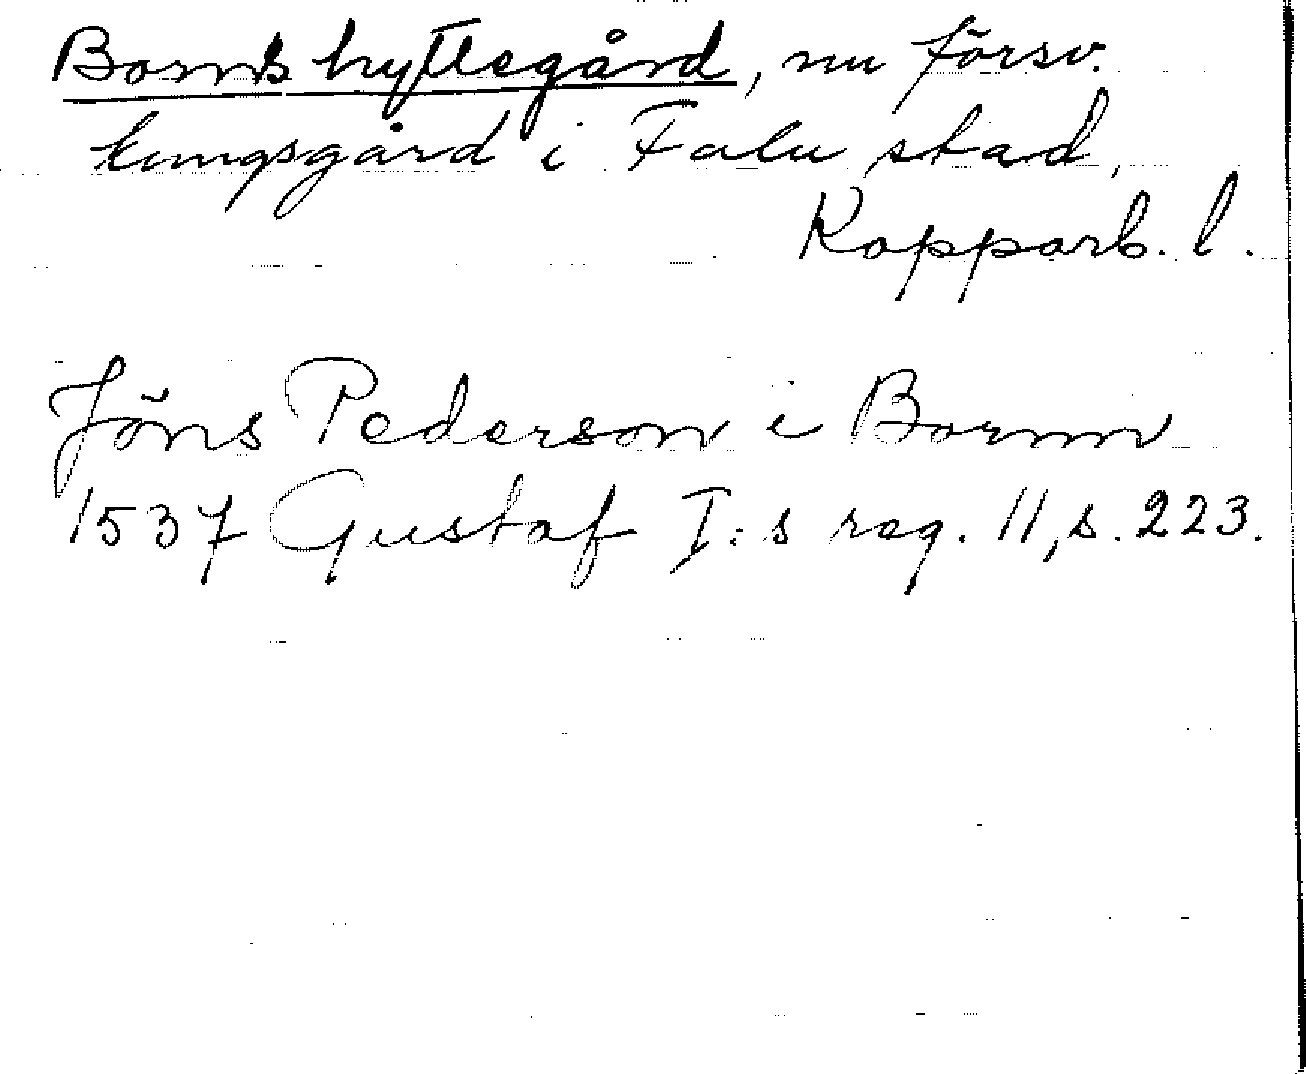 Borns hyttegård, nu försv.
kungsgård i Falu stad,
Kopparb. l.
Jöns Pederson i Bornn
1537 Gustaf I:s reg. 11, s. 223.